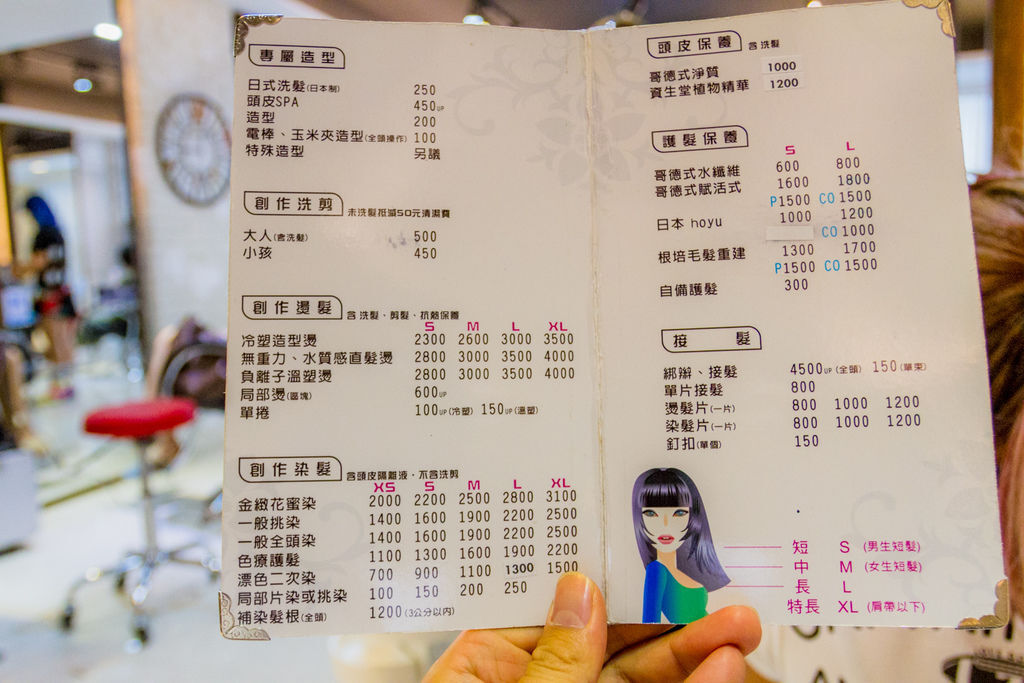 專屬造型
日式洗髮(日本制) 250
頭皮SPA 450UP
造型 200
電棒、玉米夾造型(全頭操作) 100
特殊造型 另議
創作洗剪 未洗髮抵減50元清潔費
大人(含洗髮) 500
小孩 450
創作燙髮 含洗髮、剪髮、抗熱保養
S M L XL
冷塑造型燙 2300 2600 3000 3500
無重力、水質感直髮燙 2800 3000 3500 4000
負離子溫塑燙 2800 3000 3500 4000
局部燙(區塊) 600UP
單捲 100UP(冷塑) 150UP(溫塑)
創作染髮 含頭皮隔離液，不含洗剪
XS S M L XL
金緻花蜜染 2000 2200 2500 2800 3100
一般挑染 1400 1600 1900 2200 2500
一般全頭染 1400 1600 1900 2200 2500
色療護髮 1100 1300 1600 1900 2200
漂色二次染 700 900 1100 1300 1500
局部片染或挑染 100 150 200 250
補染髮根(全頭) 1200(3公分以內)
頭皮保養 含洗髮
哥德式淨質 1000
資生堂植物精華 1200
護髮保養
S L
哥德式水纖維 600 800
哥德式賦活式 1600 1800
P1500 CO1500
日本 hoyu 1000 1200
CO1000
根培毛髮重建 1300 1700
P1500 CO1500
自備護髮 300
接髮
綁辮、接髮 4500UP(全頭) 150(單束)
單片接髮 800
燙髮片(一片) 800 1000 1200
染髮片(一片) 800 1000 1200
釘扣(單個) 150
短 S (男生短髮)
中 M (女生短髮)
長 L
特長 XL (肩帶以下)